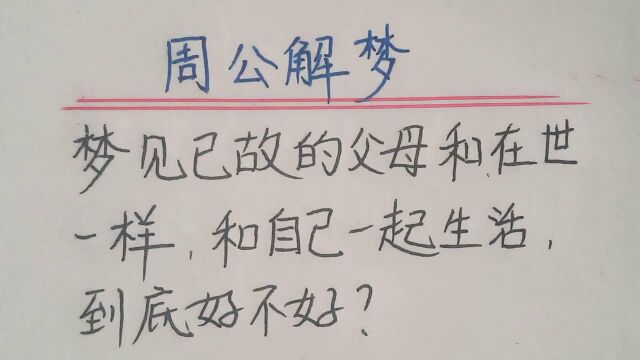 周公解梦
梦见已故的父母和在世
一样,和自己一起生活,
到底好不好?